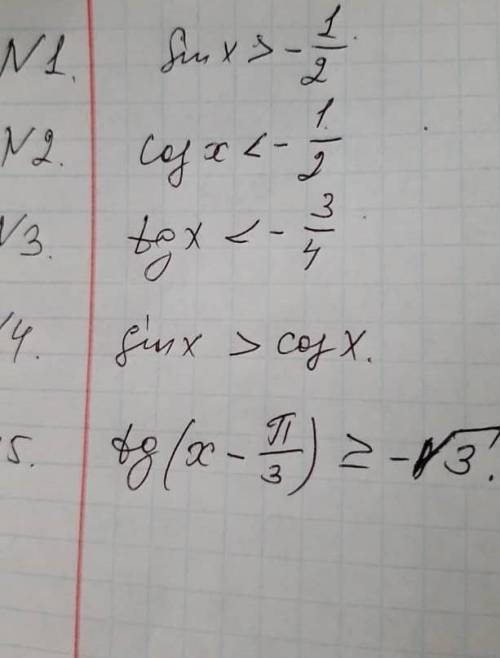 N1. sin x > -1/2.
N2. cos x < -1/2
N3. tg x < -3/4.
4. sin x > cos x.
5. tg(x - π/3) ≥ -√3.